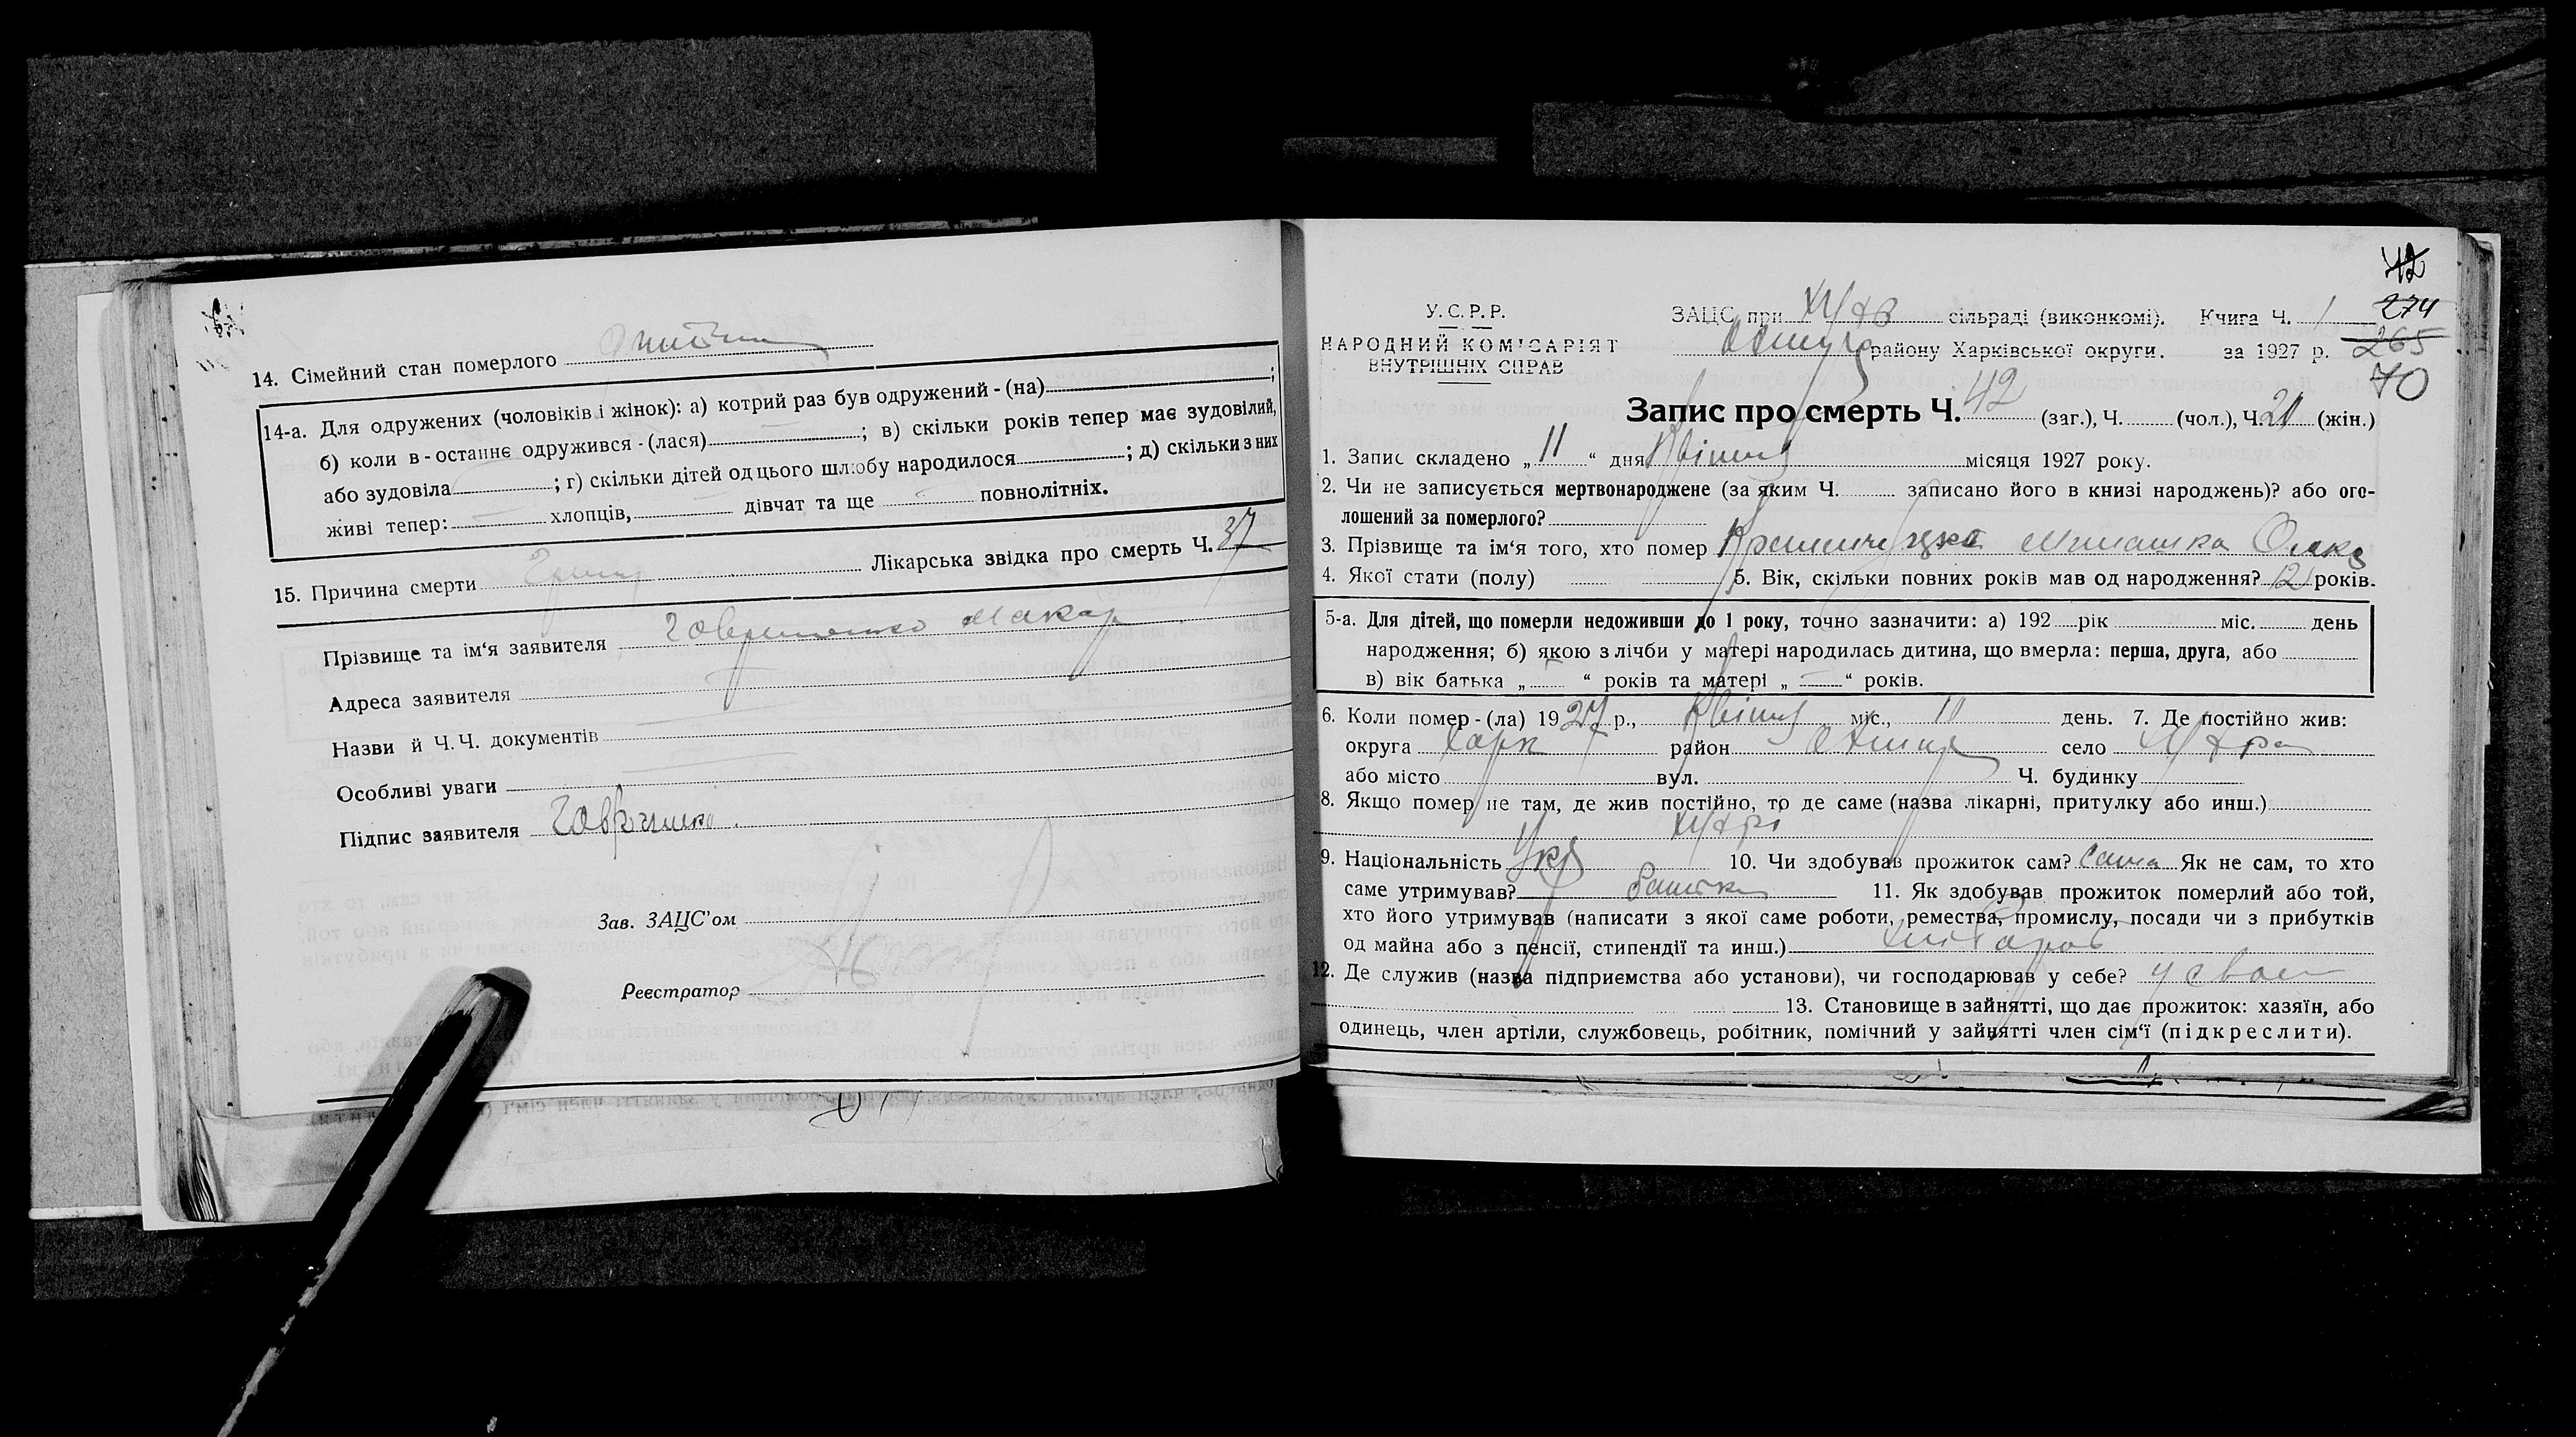 14. Сімейний стан померлого
14-а. Для одружених (чоловіків і жінок): а) котрий раз був одружений - (на) ;
б) коли в - останнє одружився - (лася) ; в) скільки років тепер має зудовілий,
або зудовіла ; г) скільки дітей од цього шлюбу народилося ; д) скільки з них
живі тепер: хлопців, дівчат та ще повнолітніх.
15. Причина смерти Лікарська звідка про смерть Ч. 37
Прізвище та ім'я заявителя Макар
Адреса заявителя
Назви й Ч. Ч. документів
Особливі уваги
Підпис заявителя
Зав. ЗАЦС'ом
Реєстратор
42
274
265
70
У. С. Р. Р.
НАРОДНИЙ КОМІСАРІЯТ
ВНУТРІШНІХ СПРАВ
ЗАЦС при сільраді (виконкомі). Книга Ч. 1
району Харківської округи. за 1927 р.
Запис про смерть Ч. 42 (заг.), Ч. (чол.), Ч. 21 (жін.)
1. Запис складено „ 11 “ дня Квітня місяця 1927 року.
2. Чи не записується мертвонароджене (за яким Ч. записано його в книзі народжень)? або ого-
лошений за померлого?
3. Прізвище та ім'я того, хто помер
4. Якої стати (полу) 5. Вік, скільки повних років мав од народження? років.
5-а. Для дітей, що померли недоживши до 1 року, точно зазначити: а) 192 рік міс. день
народження; б) якою з лічби у матері народилась дитина, що вмерла: перша, друга, або
в) вік батька „ “ років та матері „ “ років.
6. Коли помер - (ла) 1927 р., Квітня міс., день. 7. Де постійно жив:
округа Харк район село
або місто вул. Ч. будинку
8. Якщо помер не там, де жив постійно, то де саме (назва лікарні, притулку або инш.)
9. Національність Укр 10. Чи здобував прожиток сам? Сама Як не сам, то хто
саме утримував? 11. Як здобував прожиток померлий або той,
хто його утримував (написати з якої саме роботи, ремества, промислу, посади чи з прибутків
од майна або з пенсії, стипендії та инш.)
12. Де служив (назва підприємства або установи), чи господарював у себе?
13. Становище в зайнятті, що дає прожиток: хазяїн, або
одинець, член артіли, службовець, робітник, помічний у зайнятті член сім'ї (підкреслити).